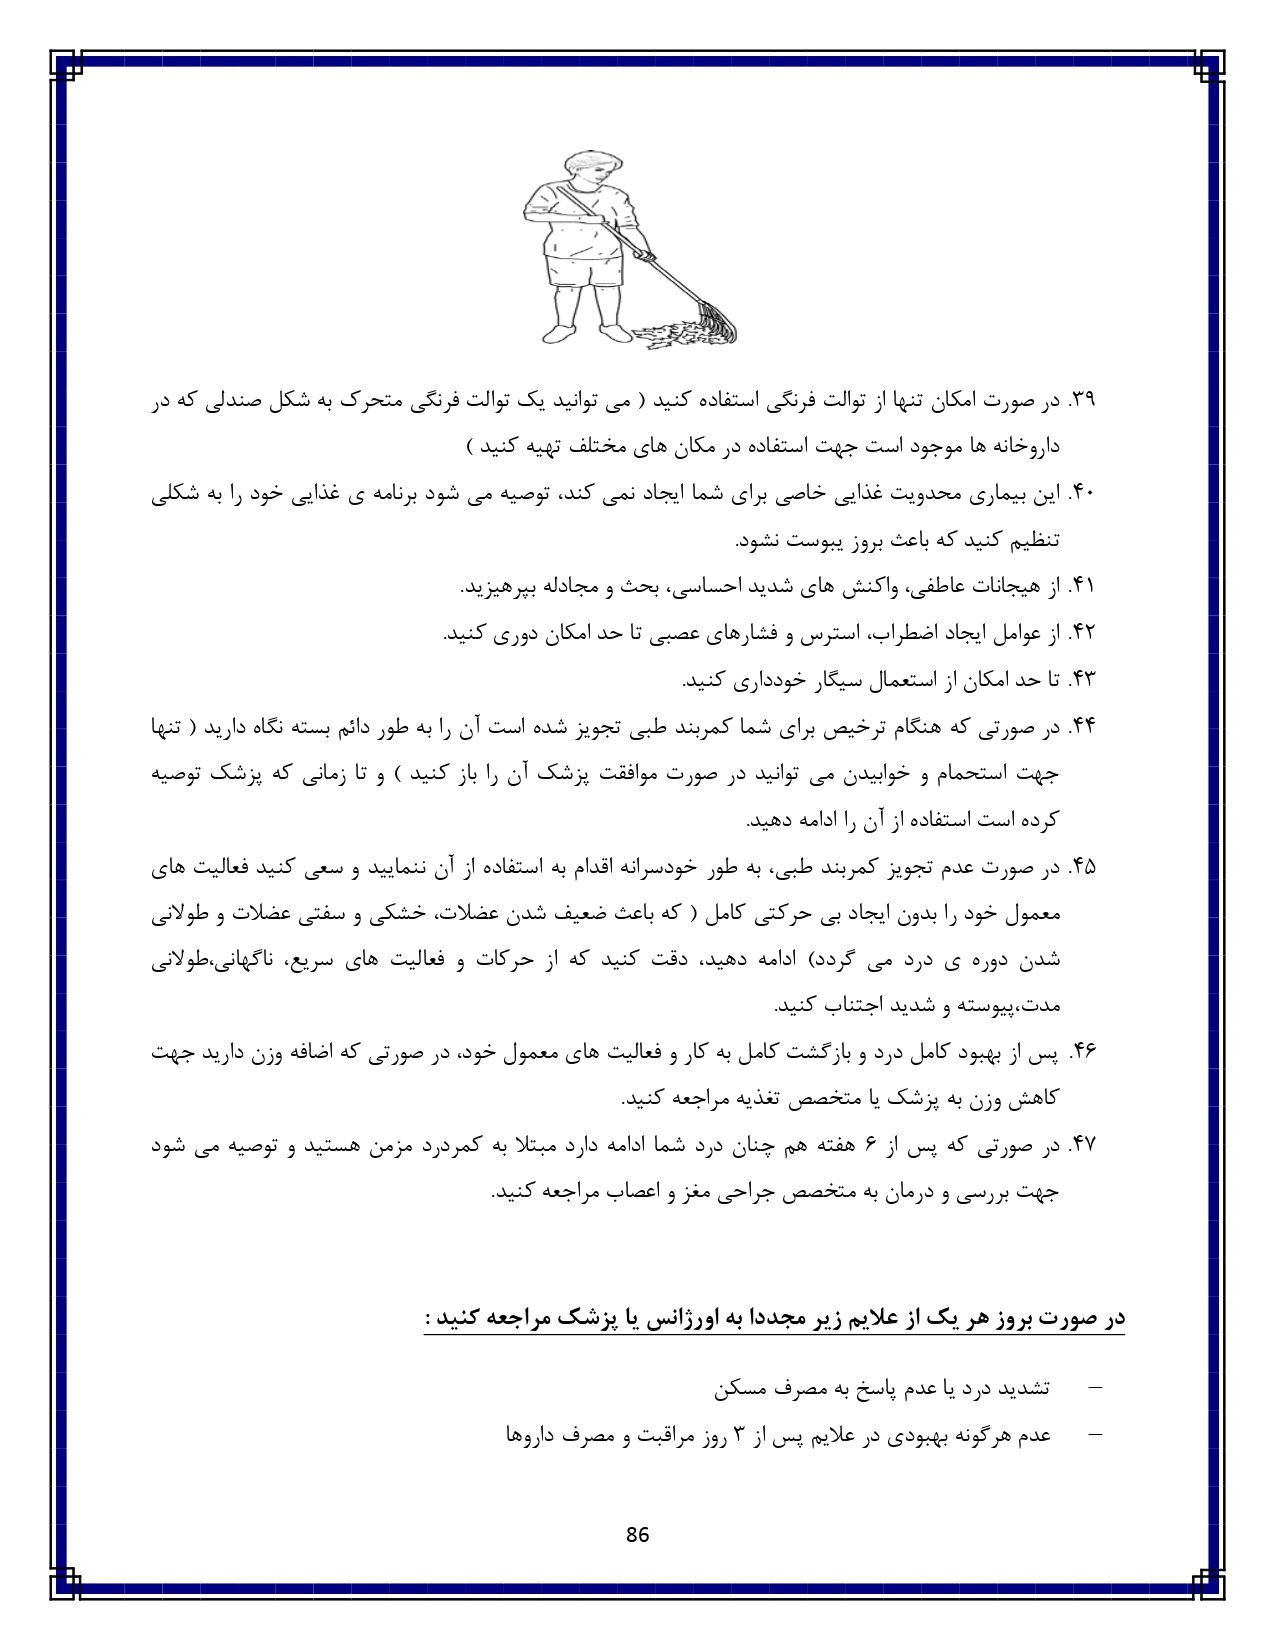 ۳۹. در صورت امکان تنها از توالت فرنگی استفاده کنید ( می توانید یک توالت فرنگی متحرک به شکل صندلی که در
داروخانه ها موجود است جهت استفاده در مکان های مختلف تهیه کنید )
۴۰. این بیماری محدویت غذایی خاصی برای شما ایجاد نمی کند، توصیه می شود برنامه ی غذایی خود را به شکلی
تنظیم کنید که باعث بروز یبوست نشود.
۴۱. از هیجانات عاطفی، واکنش های شدید احساسی، بحث و مجادله بپرهیزید.
۴۲. از عوامل ایجاد اضطراب، استرس و فشارهای عصبی تا حد امکان دوری کنید.
۴۳. تا حد امکان از استعمال سیگار خودداری کنید.
۴۴. در صورتی که هنگام ترخیص برای شما کمربند طبی تجویز شده است آن را به طور دائم بسته نگاه دارید ( تنها
جهت استحمام و خوابیدن می توانید در صورت موافقت پزشک آن را باز کنید ) و تا زمانی که پزشک توصیه
کرده است استفاده از آن را ادامه دهید.
۴۵. در صورت عدم تجویز کمربند طبی، به طور خودسرانه اقدام به استفاده از آن ننمایید و سعی کنید فعالیت های
معمول خود را بدون ایجاد بی حرکتی کامل ( که باعث ضعیف شدن عضلات، خشکی و سفتی عضلات و طولانی
شدن دوره ی درد می گردد) ادامه دهید، دقت کنید که از حرکات و فعالیت های سریع، ناگهانی،طولانی
مدت،پیوسته و شدید اجتناب کنید.
۴۶. پس از بهبود کامل درد و بازگشت کامل به کار و فعالیت های معمول خود، در صورتی که اضافه وزن دارید جهت
کاهش وزن به پزشک یا متخصص تغذیه مراجعه کنید.
۴۷. در صورتی که پس از ۶ هفته هم چنان درد شما ادامه دارد مبتلا به کمردرد مزمن هستید و توصیه می شود
جهت بررسی و درمان به متخصص جراحی مغز و اعصاب مراجعه کنید.
در صورت بروز هر یک از علایم زیر مجددا به اورژانس یا پزشک مراجعه کنید :
– تشدید درد یا عدم پاسخ به مصرف مسکن
– عدم هرگونه بهبودی در علایم پس از ۳ روز مراقبت و مصرف داروها
86